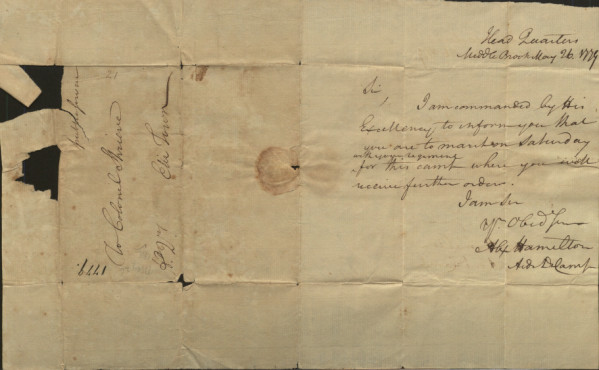 Head Quarters
Middle Brook May 26. 1779
Sir,
I am commanded by His
Excellency to inform you that
you are to march on Saturday
with your regiment
for this camp where you will
receive further orders.
I am Sir
Yr Obed Serv
Alx Hamilton
Aide De Camp
To Colonel Shreve
Eliz Town
1779.
21